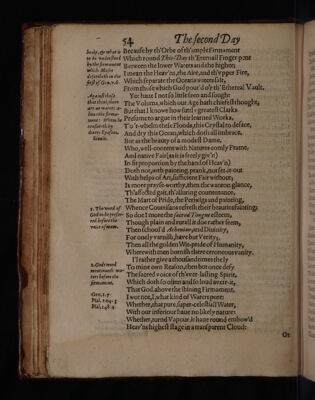 54
The second Day
body, &c what is
to be understood
by the firmament
which Moses
describeth in the
first of Gen. 7. 6.
Because by th'Orbe of th'ample Firmament
Which round This-Day th'Eternall Finger pent
Between the lower Waters and the higher;
I mean the Heav'ns, the Aire, and th'vpper Fire,
Which separate the Oceans waters salt,
From those which God pour'd o'r th'Ethereal Vault.
Against such
that think there
are no waters a-
boue the firma-
ment: Whom he
confuteth by
diuers Reasons.
Simile.
Yet haue I not so little seen and songht
The Volums, which our Age hath chiefest thought,
But that I know how suttl-greatest Clarks
Presume to argue in their learned Works,
T'o'r-whelm these Floods, this Crystall to deface,
And dry this Ocean, which doth all imbrace.
But as the beauty of a modest Dame,
Who, well-content with Natures comly Frame,
And native Fair (as it is freely giv'n)
In fit proportion by the hand of Heav'n)
Doth not, with painting, prank, nor set it out
With helps of Art, sufficient Fair without;
Is more prayse-worthy, then the wanton glance,
Th'affected gait, th'alluring countenance,
The Mart of Pride, the Periwigs and painting,
Whence Courtisans refresh their beauties fainting:
1. The word of
God to be prefer-
red before the
voice of men.
So doe I more the sacred Tongue esteem,
Though plain and rurall it doe rather seem,
Then schoold Athenian; and Diuinity,
For onely varnish, haue but Verity;
Then all the golden Wit-pride of Humanity,
Wherewith men burnish their erroneous vanity.
I'l rather giue a thousand times the ly
To mine own Reason, then but once defy
2. Gods word
mentioneth wa-
ters before the
firmament.
Gen. 1. 7.
Psal. 104. 3
Psal. 148. 4
The sacred voice of th'ever-lasting Spirit,
Which doth so often and so loud averr-it,
That God, above the shining Firmament,
I wot not, I, what kind of Waters pent:
Whether, that pure, super-celestiall Water,
With our inferiour haue no likely nature:
Whether, turnd Vapour, it haue round embow'd
Heav'ns highest stage in a transparent Cloud:
Or